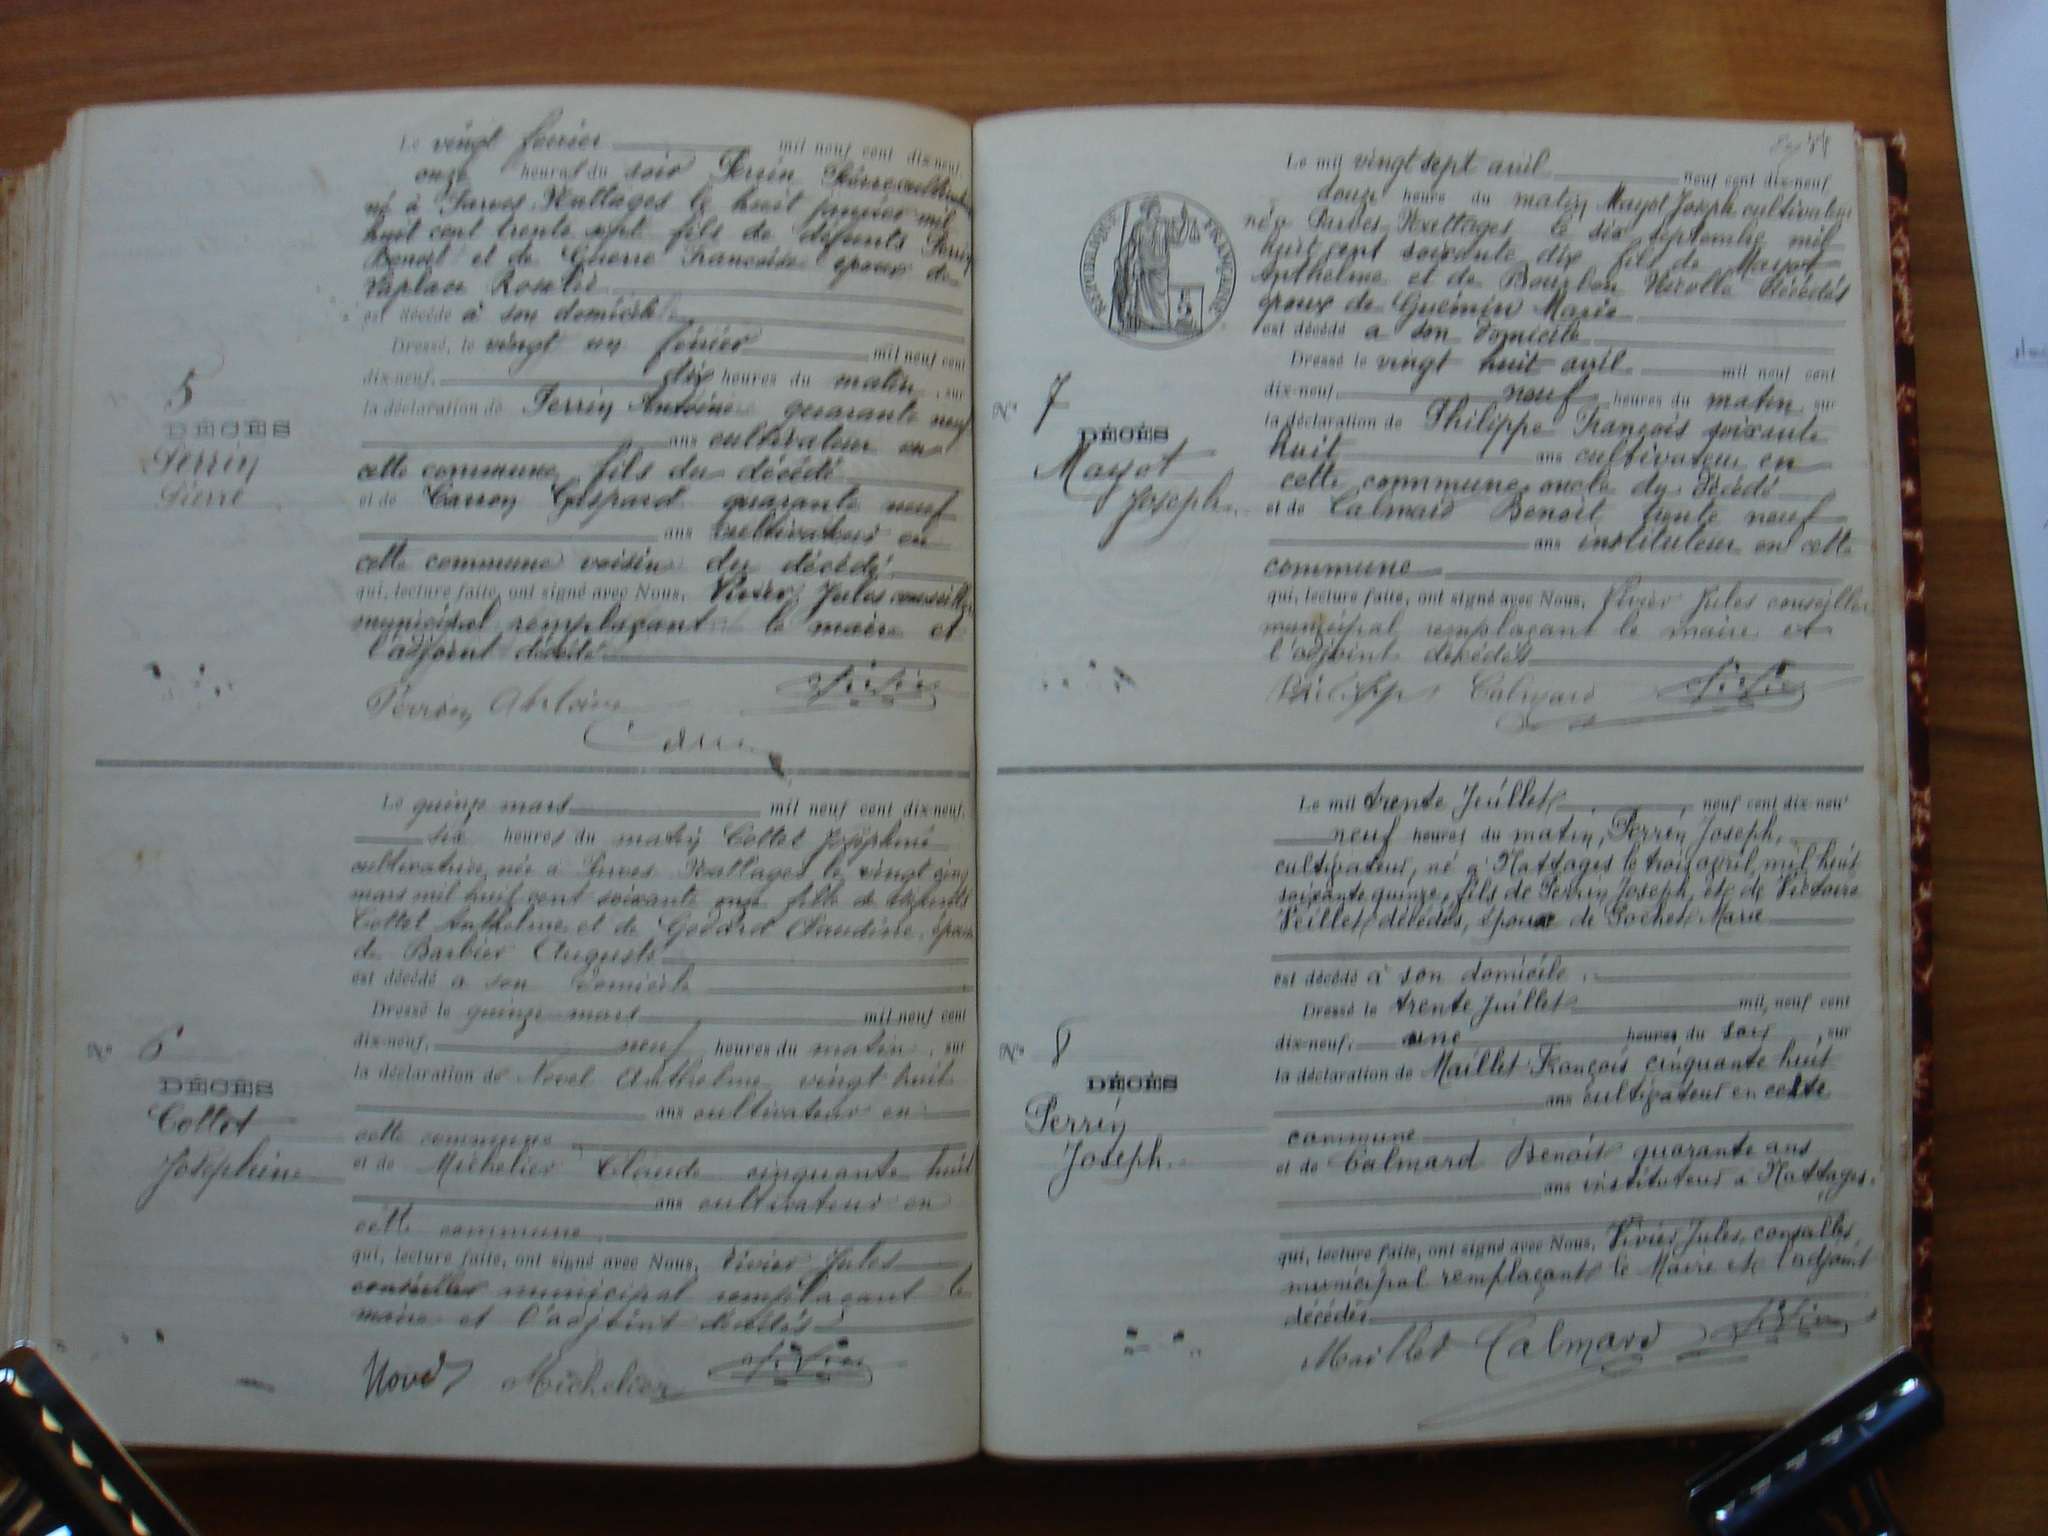 Le vingt février mil neuf cent dix-neuf,
onze heures du soir Perrin Pierre cultivateur
né à Parves-Nattages le huit janvier mil
huit cent trente sept fils de défunts Perrin
Benoit et de Guerre Françoise époux de
Laplace Rosalie
est décédé à son domicile
Dressé, le vingt un février mil neuf cent
dix-neuf, dix heures du matin, sur
la déclaration de Perrin Antoine quarante neuf
ans cultivateur en
cette commune, fils du décédé
et de Carron Gaspard quarante neuf
ans cultivateur en
cette commune voisin du décédé
qui, lecture faite, ont signé avec Nous, Vivier Jules conseiller
municipal remplaçant le maire et
l'adjoint décédé
5
DÉCÈS
Perrin
Pierre
Perrin Antoine
Le quinze mars mil neuf cent dix-neuf,
six heures du matin Cottet Joséphine
cultivatrice née à Parves Nattages le vingt cinq
mars mil huit cent soixante onze fille de défunts
Cottet Anthelme et de Godard Claudine, épouse
de Barbier Auguste
est décédé a son domicile
Dressé le quinze mars mil neuf cent
dix-neuf, neuf heures du matin, sur
la déclaration de Novel Anthelme vingt huit
ans cultivateur en
cette commune
et de Michelier Claude cinquante huit
ans cultivateur en
cette commune
qui, lecture faite, ont signé avec Nous, Vivier Jules
conseiller municipal remplaçant le
maire et l'adjoint décédés
No 6
DÉCÈS
Cottet
Joséphine
Novel Michelier
Le mil vingt sept avril neuf cent dix-neuf,
douze heure du matin Mayot Joseph cultivateur
né à Parves-Nattages le six septembre mil
huit cent soixante dix fils de Mayot
Anthelme et de Bourbon Nicolle décédés
époux de Guémin Marie
est décédé a son domicile
Dressé le vingt huit avril mil neuf cent
dix-neuf, neuf heures du matin, sur
la déclaration de Philippe François soixante
huit ans cultivateur en
cette commune oncle du décédé
et de Calmard Benoit trente neuf
ans instituteur en cette
commune
qui, lecture faite, ont signé avec Nous, Vivier Jules conseiller
municipal remplaçant le maire et
l'adjoint décédés
RÉPUBLIQUE FRANÇAISE
No 7
DÉCÈS
Mayot
Joseph
Philippe Calmard
Le mil trente Juillet neuf cent dix-neuf
neuf heures du matin, Perrin Joseph,
cultivateur, né à Nattages le trois avril mil huit
soixante quinze, fils de Perrin Joseph, et de Victoire
Veillet décédés, époux de Pochet Marie
est décédé à son domicile.
Dressé le trente Juillet mil, neuf cent
dix-neuf, une heures du soir, sur
la déclaration de Maillet François cinquante huit
ans cultivateur en cette
commune
et de Calmard Benoit quarante ans
ans instituteur à Nattages.
qui, lecture faite, ont signé avec Nous, Vivier Jules, conseiller
municipal remplaçant le Maire et l'adjoint
décédés
No 8
DÉCÈS
Perrin
Joseph.
Maillet Calmard